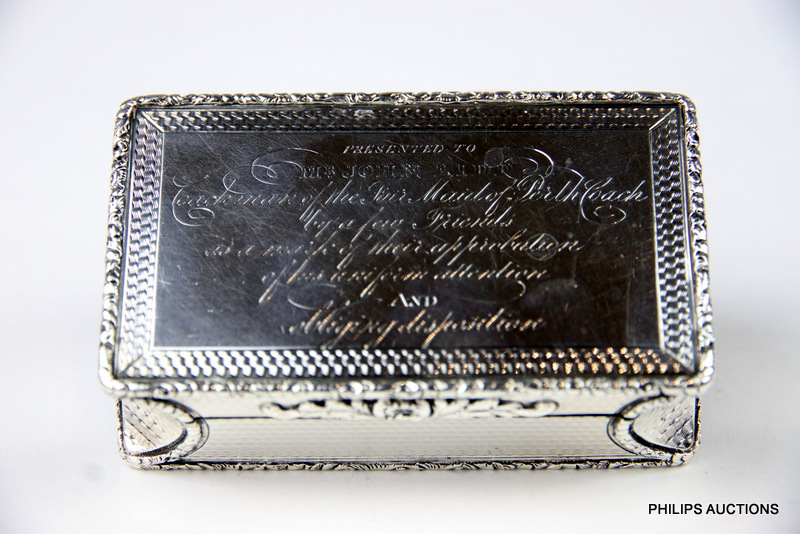 PRESENTED TO
MR JOHN
Coachman of the Fair Maid of Perth Coach
by a few Friends
as a mark of their approbation
of his uniform attention
AND
Obliging disposition
PHILIPS AUCTIONS